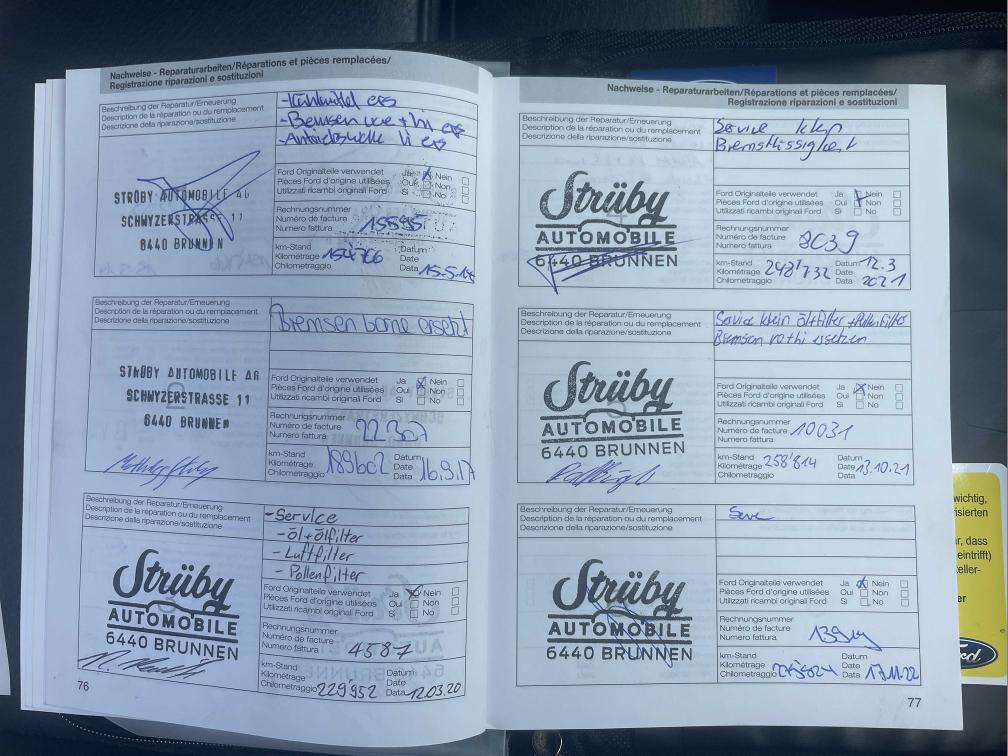 Nachweise - Reparaturarbeiten/Réparations et pièces remplacées/
Registrazione riparazioni e sostituzioni
Beschreibung der Reparatur/Erneuerung
Description de la réparation ou du remplacement
Descrizione della riparazione/sostituzione
- Kühlmittel ers
- Bremsen
STRÜBY AUTOMOBILE AG
SCHWYZERSTRASSE 11
6440 BRUNNEN
Ford Originalteile verwendet Ja Nein
Pièces Ford d'origine utilisées Oui Non
Utilizzati ricambi originali Ford Si No
Rechnungsnummer
Numéro de facture
Numero fattura
km-Stand Datum
Kilométrage Date
Chilometraggio Data
Beschreibung der Reparatur/Erneuerung
Description de la réparation ou du remplacement
Descrizione della riparazione/sostituzione
Bremsen vorne ersetzt
STRÜBY AUTOMOBILE AG
SCHWYZERSTRASSE 11
6440 BRUNNEN
Ford Originalteile verwendet Ja Nein
Pièces Ford d'origine utilisées Oui Non
Utilizzati ricambi originali Ford Si No
Rechnungsnummer
Numéro de facture
Numero fattura
km-Stand Datum
Kilométrage Date
Chilometraggio Data 16.9.17
Beschreibung der Reparatur/Erneuerung
Description de la réparation ou du remplacement
Descrizione della riparazione/sostituzione
- Service
- öl + ölfilter
- Luftfilter
- Pollenfilter
Strüby
AUTOMOBILE
6440 BRUNNEN
Ford Originalteile verwendet Ja Nein
Pièces Ford d'origine utilisées Oui Non
Utilizzati ricambi originali Ford Si No
Rechnungsnummer
Numéro de facture
Numero fattura 4587
km-Stand Datum
Kilométrage Date
Chilometraggio 229'952 Data 12.03.20
76
Nachweise - Reparaturarbeiten/Réparations et pièces remplacées/
Registrazione riparazioni e sostituzioni
Beschreibung der Reparatur/Erneuerung
Description de la réparation ou du remplacement
Descrizione della riparazione/sostituzione
Service klein
Bremsflüssigkeit
Strüby
AUTOMOBILE
6440 BRUNNEN
Ford Originalteile verwendet Ja Nein
Pièces Ford d'origine utilisées Oui Non
Utilizzati ricambi originali Ford Si No
Rechnungsnummer
Numéro de facture
Numero fattura 8039
km-Stand Datum 12.3
Kilométrage 248'732 Date 2021
Chilometraggio Data
Beschreibung der Reparatur/Erneuerung
Description de la réparation ou du remplacement
Descrizione della riparazione/sostituzione
Service klein ölfilter + Pollenfilter
Bremsen
Strüby
AUTOMOBILE
6440 BRUNNEN
Ford Originalteile verwendet Ja Nein
Pièces Ford d'origine utilisées Oui Non
Utilizzati ricambi originali Ford Si No
Rechnungsnummer
Numéro de facture 10031
Numero fattura
km-Stand Datum
Kilométrage 258'814 Date 13.10.21
Chilometraggio Data
Beschreibung der Reparatur/Erneuerung
Description de la réparation ou du remplacement
Descrizione della riparazione/sostituzione
Strüby
AUTOMOBILE
6440 BRUNNEN
Ford Originalteile verwendet Ja Nein
Pièces Ford d'origine utilisées Oui Non
Utilizzati ricambi originali Ford Si No
Rechnungsnummer
Numéro de facture
Numero fattura
km-Stand Datum
Kilométrage Date 17.11.22
Chilometraggio Data
77
wichtig,
isierten
ar, dass
eintrifft)
teller-
er
Ford